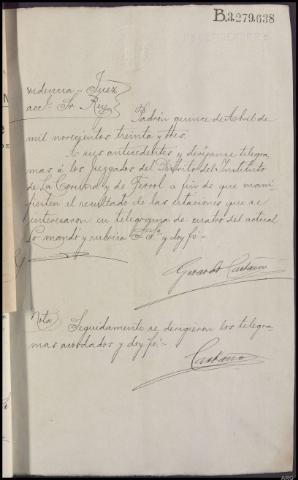 B.3.279.638
Juez
videncia
accl. Sr. Rey
Padrón quince de Abril de
mil novecientos treinta y tres.
A sus antecedentes y diríjanse telegra-
mas á los Juzgados del Distrito del Instituto
de La Coruña y de Ferrol a fin de que mani-
fiesten el resultado de las citaciones que se
interesaron en telegrama de cuatro del actual
Lo mandó y rubrica S.Sª y doy fé.-
Gerardo
Nota) Seguidamente se dirigieron los telegra-
mas acordados y doy fé.-
ARG